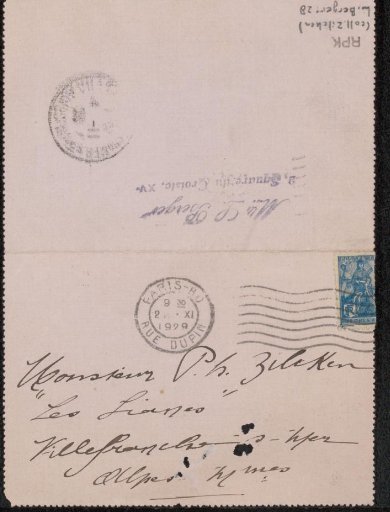 RPK
(coll Zilcken)
L. Berger: 28
L. Berger
2, Square du Croisic, XV.
PARIS-80
9 30
XI
1929
RUE DUPIN
Monsieur Ph. Zilcken
"Les Lianes"
Villefranche-s-Mer
Alpes Mmes